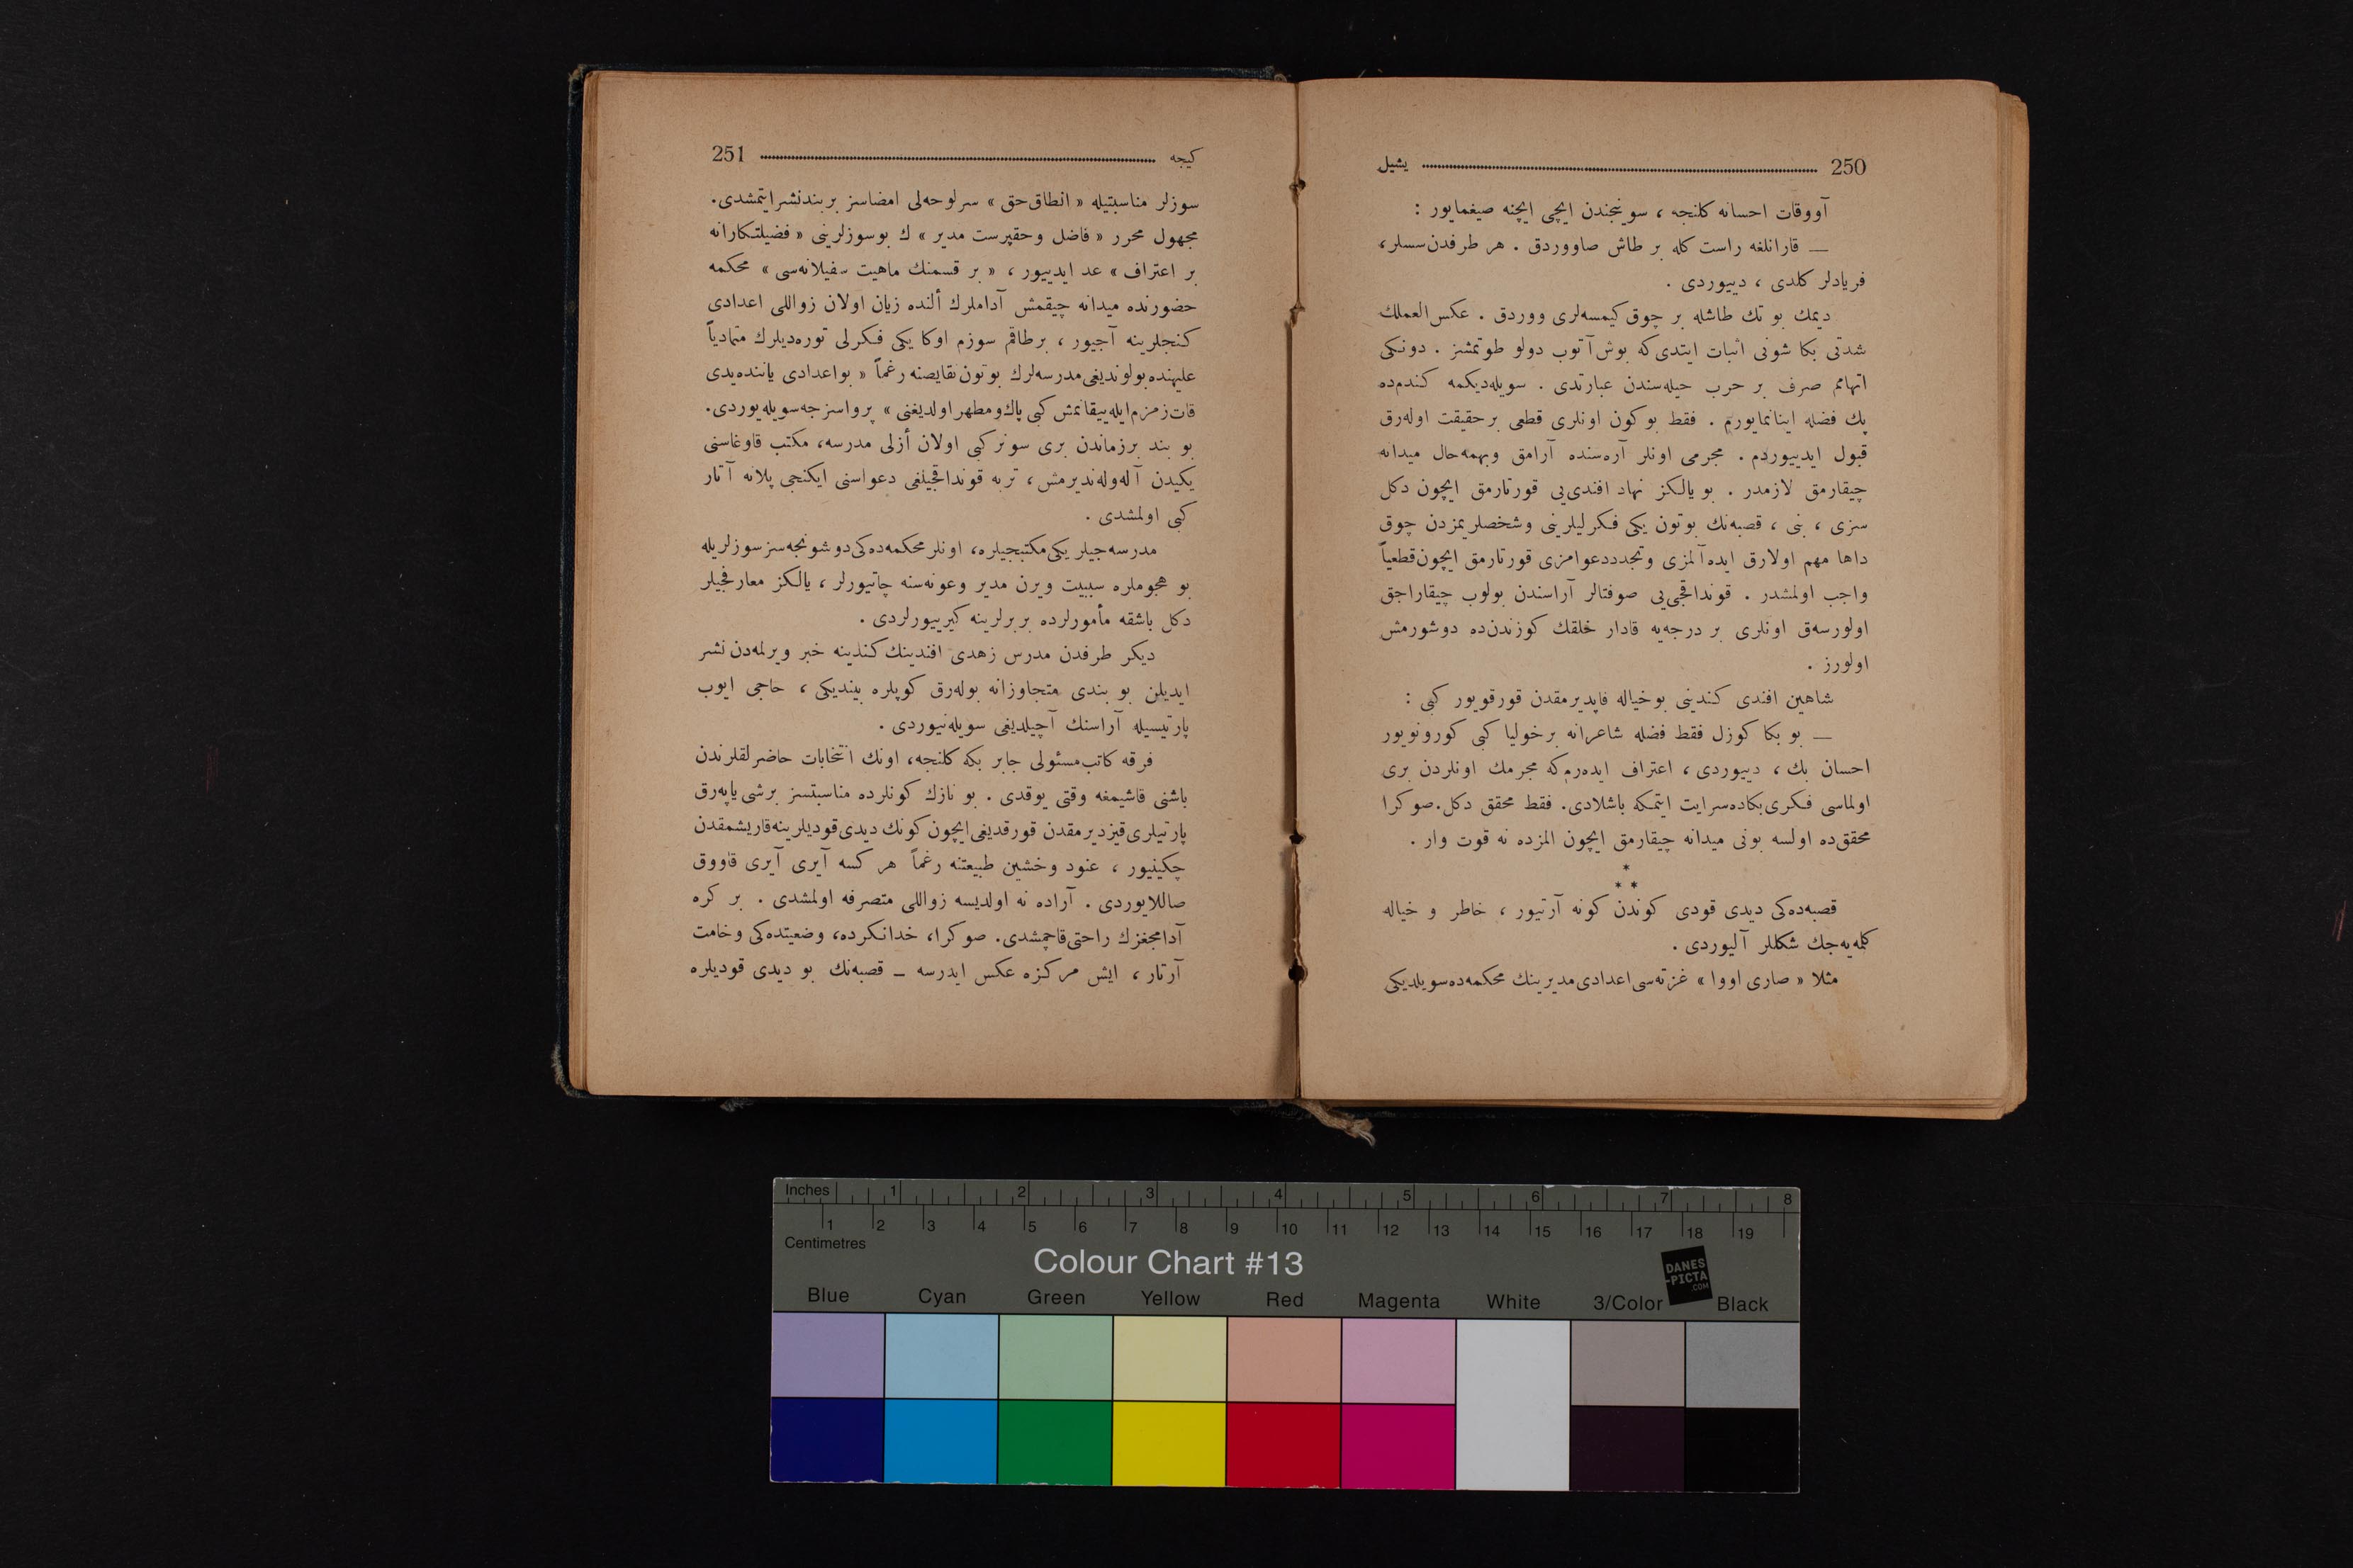 250 يشيل
آووقات احسانه كلنجه ، سوينجندن ايچى ايچنه صيغمايور :
— قارانلغه راست كله بر طاش صاووردق . هر طرفدن سسلر،
فريادلر كلدى ، دييوردى .
ديمك بو تك طاشله بر چوق كيمسه‌لرى ووردق . عكس العملك
شدتى بكا شونى اثبات ايتدى كه بوش آتوب دولو طوتمشز . دونكى
اتهامم صرف بر حرب حيله‌سندن عبارتدى . سويله‌ديكمه كندم‌ده
پك فضله اينانمايوردم . فقط بو كون اونلرى قطعى بر حقيقت اوله‌رق
قبول ايدييوردم . مجرمى اونلر آره‌سنده آرامق وبهمه‌حال ميدانه
چيقارمق لازمدر . بو يالكز نهاد افندى‌يى قورتارمق ايچون دكل
سزى ، بنى ، قصبه‌نك بوتون يكى فكرليلرينى وشخصلريمزدن چوق
داها مهم اولارق ايده‌آلمزى وتجدددعوامزى قورتارمق ايچون قطعياً
واجب اولمشدر . قونداقجى‌يى صوفتالر آراسندن بولوب چيقاراجق
اولورسه‌ق اونلرى بر درجه‌يه قادار خلقك كوزندن‌ده دوشورمش
اولورز .
شاهين افندى كندينى بوخياله قاپديرمقدن قورقويور كبى :
— بو بكا كوزل فقط فضله شاعرانه برخوليا كبى كورونويور
احسان بك ، دييوردى ، اعتراف ايده‌رم‌كه مجرمك اونلردن برى
اولماسى فكرى‌بكاده‌سرايت ايتمكه باشلادى. فقط محقق دكل. صوكرا
محقق‌ده اولسه بونى ميدانه چيقارمق ايچون المزده نه قوت وار .
*
* *
قصبه‌ده‌كى ديدى قودى كوندن كونه آرتيور ، خاطر و خياله
كلمه‌يه‌جك شكللر آليوردى .
مثلا « صارى اووا » غزته‌سى اعدادى مديرينك محكمه‌ده سويلديكى
كيجه 251
سوزلر مناسبتيله « انطاق حق » سرلوحه‌لى امضاسز بر بند نشر ايتمشدى.
مجهول محرر « فاضل وحقپرست مدير » ك بوسوزلرينى « فضيلتكارانه
بر اعتراف » عد ايدييور ، « بر قسمنك ماهيت سفيلانه‌سى » محكمه
حضورنده ميدانه چيقمش آداملرك ألنده زيان اولان زواللى اعدادى
كنجلرينه آجيور ، برطاقم سوزم اوكا يكى فكرلى توره‌ديلرك متمادياً
عليهنده بولونديغى مدرسه‌لرك بوتون نقايصنه رغماً « بواعدادى ياننده‌يدى
قات زمزم ايله ييقانمش كبى پاك ومطهر اولديغنى » پرواسزجه سويله‌يوردى.
بو بند برزماندن برى سونر كبى اولان أزلى مدرسه، مكتب قاوغاسنى
يكيدن آلوله‌نديرمش ، تربه قونداقجيلغى دعواسنى ايكنجى پلانه آتار
كبى اولمشدى .
مدرسه‌جيلر يكى مكتبجيلره، اونلر محكمه‌ده‌كى دوشونجه‌سز سوزلريله
بو هجوملره سببيت ويرن مدير وعونه‌سنه چاتيورلر ، يالكز معارفجيلر
دكل باشقه مأمورلرده بربرلرينه كيرييورلردى .
ديكر طرفدن مدرس زهدى افندينك كندينه خبر ويرلمه‌دن نشر
ايديلن بو بندى متجاوزانه بوله‌رق كوپلره بينديكى ، حاجى ايوب
پارتيسيله آراسنك آچيلديغى سويله‌نيوردى .
فرقه كاتب مسئولى جابر بكه كلنجه، اونك انتخابات حاضرلقلرندن
باشنى قاشيمغه وقتى يوقدى . بو نازك كونلرده مناسبتسز برشى ياپه‌رق
پارتيلرى قيزديرمقدن قورقديغى ايچون كونك ديدى قوديلرينه قاريشمقدن
چكينيور ، عنود وخشين طبيعتنه رغماً هر كسه آيرى آيرى قاووق
صاللايوردى . آراده نه اولديسه زواللى متصرفه اولمشدى . بر كره
آدامجغزك راحتى قاچمشدى. صوكرا، خدانكرده، وضعيتده‌كى وخامت
آرتار ، ايش مركزه عكس ايدرسه — قصبه‌نك بو ديدى قوديلره
Inches 1 2 3 4 5 6 7 8
1 2 3 4 5 6 7 8 9 10 11 12 13 14 15 16 17 18 19
Centimetres
Colour Chart #13
DANES
-PICTA
.COM
Blue Cyan Green Yellow Red Magenta White 3/Color Black